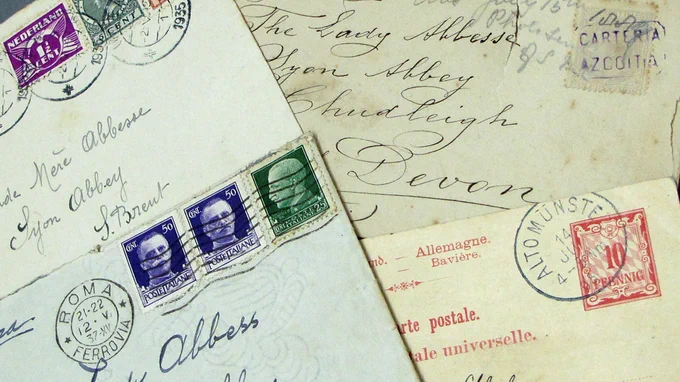 NEDERLAND
1½
CENT
CENT
1935
1935
1935
Mère Abbesse
Syon Abbey
S. Brent
The Lady Abbesse
Syon Abbey
Chudleigh
Devon
CARTERIA
AZCOITIA
CENT. 50
POSTE ITALIANE
CENT. 50
POSTE ITALIANE
25
ROMA
21-22
12·V
FERROVIA
Lady Abbess
Allemagne.
Bavière.
ALTOMÜNSTE
14
10
PFENNIG
rte postale.
ale universelle.